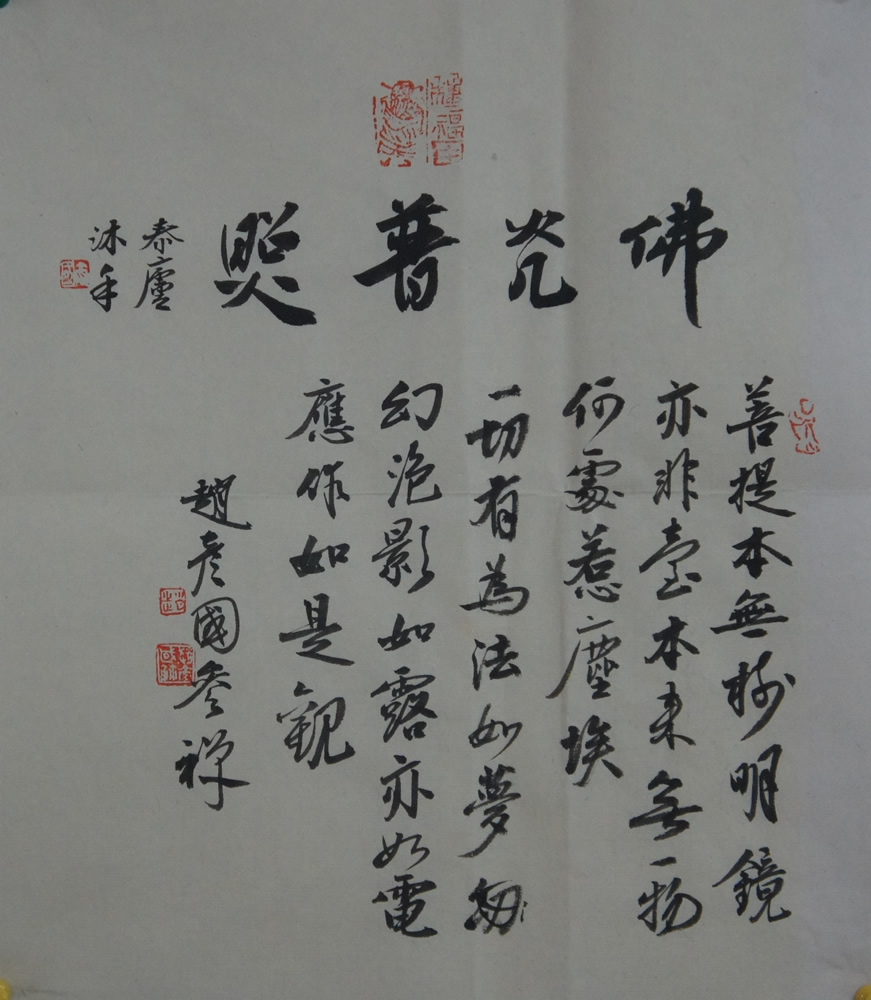 佛光普照
泰廬
沐手
菩提本無樹明鏡
亦非臺本來無一物
何處惹塵埃
一切有為法如夢
幻泡影如露亦如電
應作如是觀
趙彥國參禪